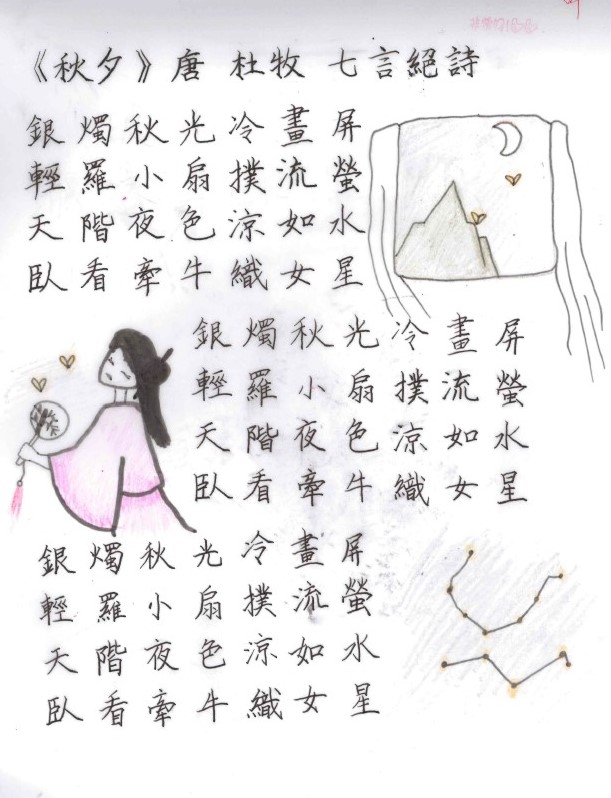 《秋夕》唐 杜牧 七言絕詩
銀燭秋光冷畫屏
輕羅小扇撲流螢
天階夜色涼如水
臥看牽牛織女星
銀燭秋光冷畫屏
輕羅小扇撲流螢
天階夜色涼如水
臥看牽牛織女星
銀燭秋光冷畫屏
輕羅小扇撲流螢
天階夜色涼如水
臥看牽牛織女星